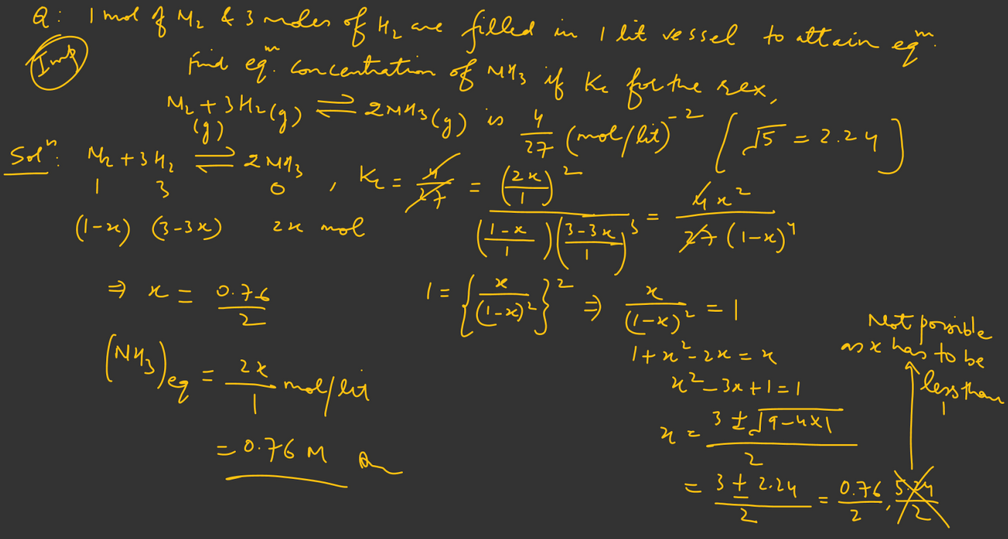 Q: 1 mol of N₂ & 3 moles of H₂ are filled in 1 lit vessel to attain eqᵐ.
(Imp) find eqᵐ. concentration of NH₃ if Kc for the rex,
N₂(g) + 3H₂(g) ⇌ 2NH₃(g) is 4/27 (mol/lit)⁻² [√5 = 2.24]
Solⁿ: N₂ + 3H₂ ⇌ 2NH₃ , Kc = 4/27 = (2x/1)² / ((1-x)/1)((3-3x)/1)³ = 4x² / 27(1-x)⁴
1 3 0
(1-x) (3-3x) 2x mol
1 = {x/(1-x)²}² ⇒ x/(1-x)² = 1
1+x²-2x = x
x²-3x+1=1
x = 3 ± √9-4×1 / 2
= 3 ± 2.24 / 2 = 0.76/2 , 5.24/2
Not possible
as x has to be
less than
1
⇒ x = 0.76/2
(NH₃)eq = 2x/1 mol/lit
= 0.76 M